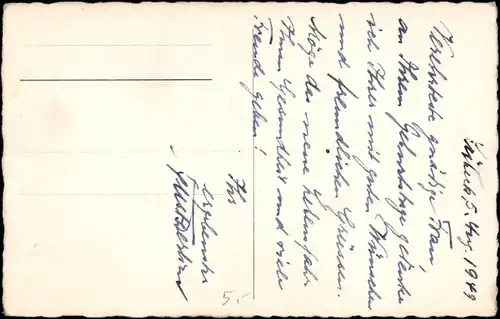 5. Aug. 1949
Verehrteste gnädige Frau
an Ihrem Geburtstage gedenke
ich Ihrer mit guten Wünschen
und freundlichen Grüssen.
Möge das neue Lebensjahr
Ihnen Gesundheit und viele
Freude geben!
Ihr
ergebenster
5.-